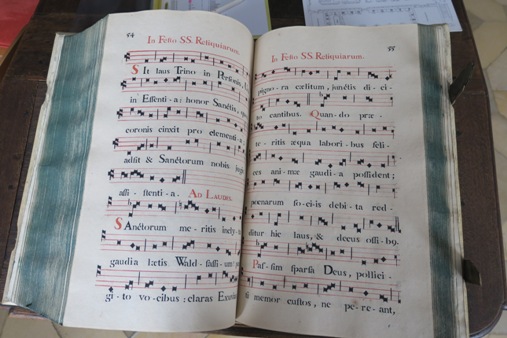 54
In Festo SS. Reliquiarum.
SIt laus Trino in Personis,
in Essenti-a: honor Sanctis,
coronis cinxit pro
adsit & Sanctorum nobis
assi-stenti-a. AD LAUDES.
SAnctorum me-ritis
gaudia lætis Wald-
gi-to vo-cibus: claras
55
In Festo SS. Reliquiarum.
pigno-ra cælitum, junctis di-ci-
to cantibus. Quan-do præ-
te-ritis æqua labori-bus feli-
ces ani-mæ gaudi-a possident;
pœnarum so-ci-is debi-ta red-
ditur hic laus, & decus ossi-b9.
Pas-sim sparsa Deus, pollici-
ti memor custos, ne pe-re-ant,